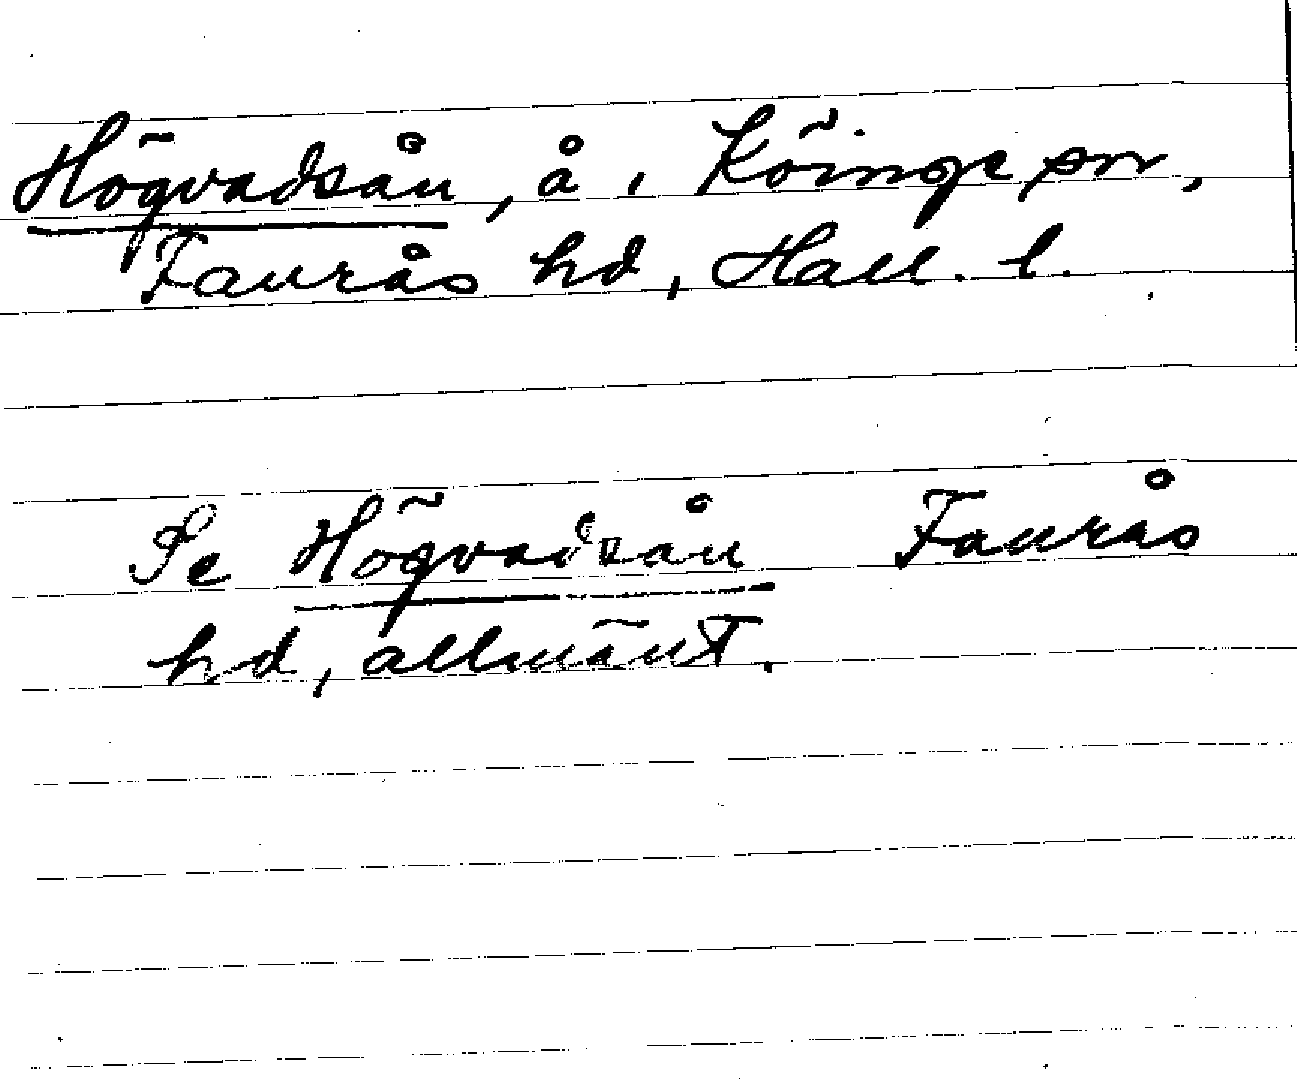 Högvadsån, å i Köinge sn,
Faurås hd, Hall. l.
Se Högvadsån Faurås
hd, allmänt.